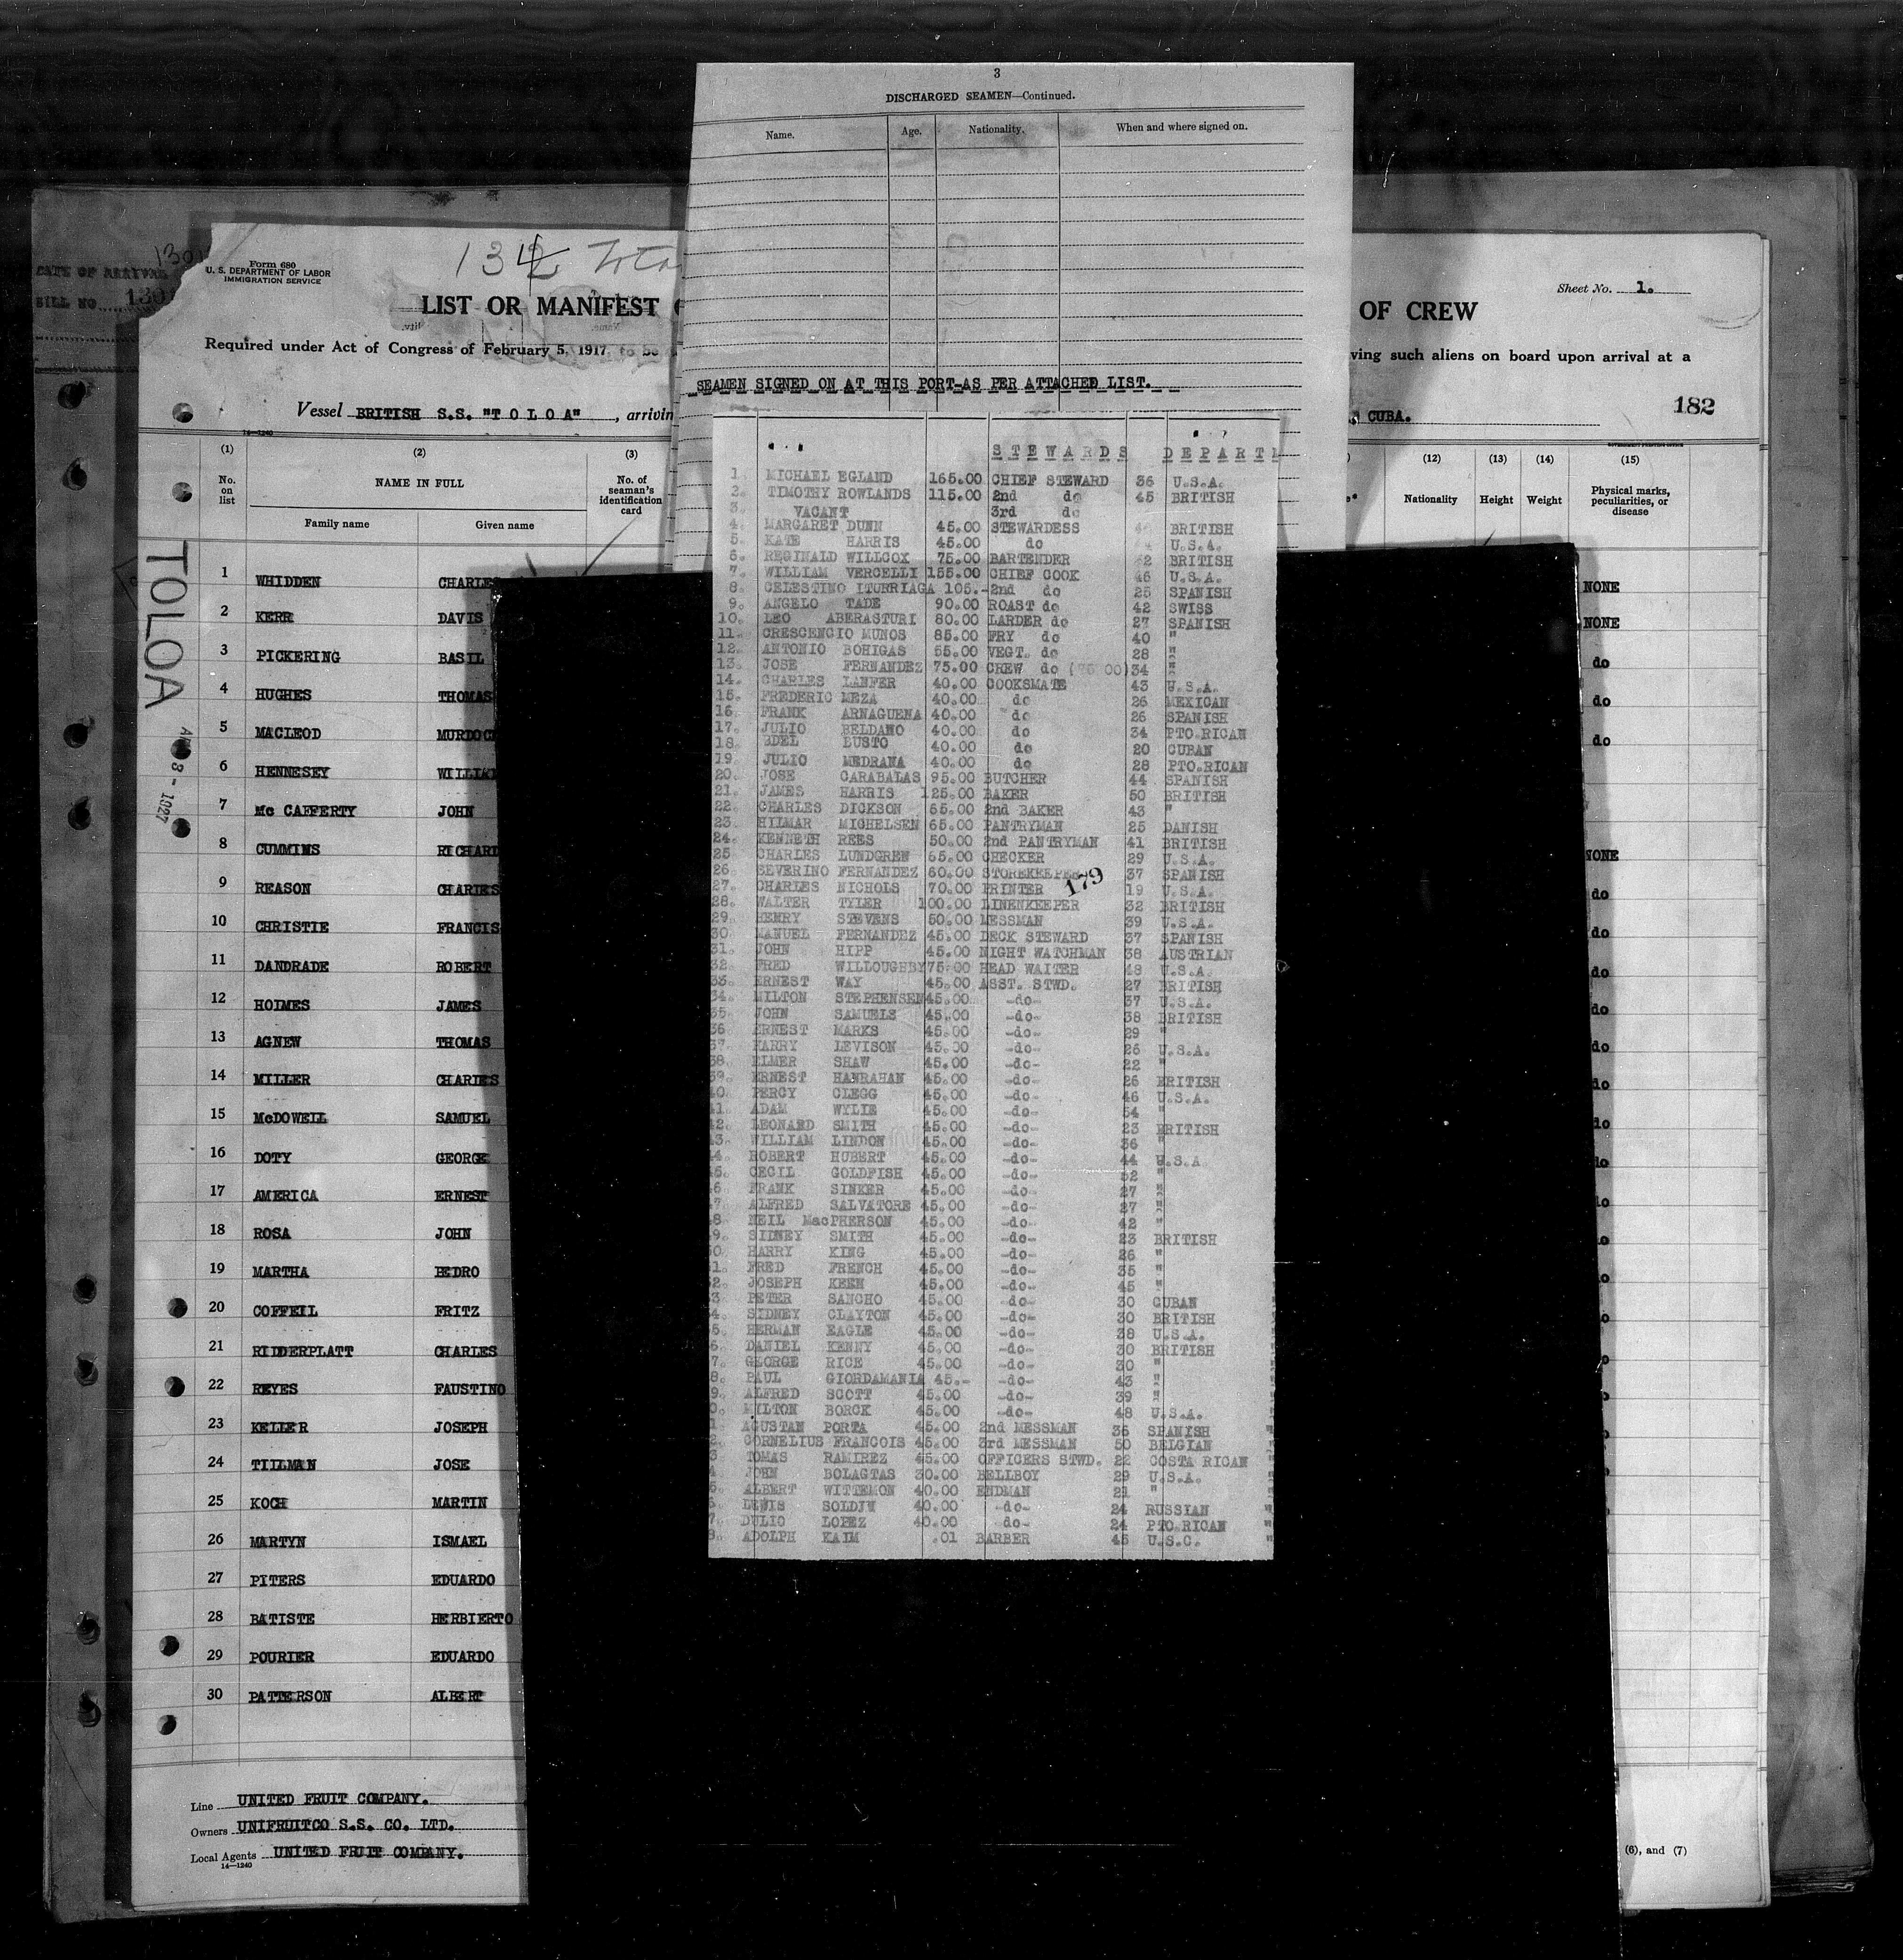 3
DISCHARGED SEAMEN—Continued.
Name. Age. Nationality. When and where signed on.
SEAMEN SIGNED ON AT THIS PORT-AS PER ATTACHED LIST.
STEWARDS DEPART
1. MICHAEL EGLAND 165.00 CHIEF STEWARD 36 U.S.A.
2. TIMOTHY ROWLANDS 115.00 2nd do 45 BRITISH
3. VACANT 3rd do
4. MARGARET DUNN 45.00 STEWARDESS BRITISH
5. KATE HARRIS 45.00 do U.S.A.
6. REGINALD WILLCOX 75.00 BARTENDER 2 BRITISH
7. WILLIAM VERCELLI 155.00 CHIEF COOK 46 U.S.A.
8. CELESTINO ITURRIAGA 105.- 2nd do 25 SPANISH
9. ANGELO TADE 90.00 ROAST do 42 SWISS
10. LEO ABERASTURI 80.00 LARDER do 27 SPANISH
11. CRESCENCIO MUNOS 85.00 FRY do 40 "
12. ANTONIO BOHIGAS 55.00 VEGT. do 28 "
13. JOSE FERNANDEZ 75.00 CREW do (75 00) 34 "
14. CHARLES LANFER 40.00 COOKSMATE 43 U.S.A.
15. FREDERIC MEZA 40.00 do 26 MEXICAN
16. FRANK ARNAGUENA 40.00 do 26 SPANISH
17. JULIO BELDANO 40.00 do 34 PTO.RICAN
18. EDEL BUSTO 40.00 do 20 CUBAN
19. JULIO MEDRANA 40.00 do 28 PTO.RICAN
20. JOSE CARABALAS 95.00 BUTCHER 44 SPANISH
21. JAMES HARRIS 125.00 BAKER 50 BRITISH
22. CHARLES DICKSON 65.00 2nd BAKER 43 "
23. HILMAR MICHELSEN 65.00 PANTRYMAN 25 DANISH
24. KENNETH REES 50.00 2nd PANTRYMAN 41 BRITISH
25 CHARLES LUNDGREN 65.00 CHECKER 29 U.S.A.
26. SEVERINO FERNANDEZ 60.00 STOREKEEPER 37 SPANISH
179
27. CHARLES NICHOLS 70.00 PRINTER 19 U.S.A.
28. WALTER TYLER 100.00 LINENKEEPER 32 BRITISH
29. HENRY STEVENS 50.00 MESSMAN 39 U.S.A.
30. MANUEL FERNANDEZ 45.00 DECK STEWARD 37 SPANISH
31. JOHN HIPP 45.00 NIGHT WATCHMAN 38 AUSTRIAN
32. FRED WILLOUGHBY 75.00 HEAD WAITER 48 U.S.A.
33. ERNEST WAY 45.00 ASST. STWD. 27 BRITISH
34. MILTON STEPHENSEN 45.00 -do- 37 U.S.A.
35. JOHN SAMUELS 45.00 -do- 38 BRITISH
36 ERNEST MARKS 45.00 -do- 29 "
37. HARRY LEVISON 45.00 -do- 26 U.S.A.
38. ELMER SHAW 45.00 -do- 22 "
39. ERNEST HANRAHAN 45.00 -do- 26 BRITISH
40. PERCY CLEGG 45.00 -do- 46 U.S.A.
41. ADAM WYLIE 45.00 -do- 54 "
42. LEONARD SMITH 45.00 -do- 23 BRITISH
43. WILLIAM LINDON 45.00 -do- 36 "
4. ROBERT HUBERT 45.00 -do- 44 U.S.A
5. CECIL GOLDFISH 45.00 -do- 52 "
6 FRANK SINKER 45.00 -do- 27 "
7 ALFRED SALVATORE 45.00 -do- 27 "
8. NEIL MacPHERSON 45.00 -do- 42 "
9. SIDNEY SMITH 45.00 -do- 23 BRITISH
0. HARRY KING 45.00 -do- 26 "
1. FRED FRENCH 45.00 -do- 35 "
2. JOSEPH KEEN 45.00 -do- 45 "
3 PETER SANCHO 45.00 -do- 30 CUBAN
4. SIDNEY CLAYTON 45.00 -do- 30 BRITISH
5. HERMAN EAGLE 45.00 -do- 38 U.S.A.
6. DANIEL KENNY 45.00 -do- 30 BRITISH
7. GEORGE RICE 45.00 -do- 30 "
8. PAUL GIORDAMANIA 45.- -do- 43 "
9. ALFRED SCOTT 45.00 -do- 39 "
0. MILTON BORCK 45.00 -do- 48 U.S.A.
1. AGUSTAN PORTA 45.00 2nd MESSMAN 36 SPANISH
2. CORNELIUS FRANCOIS 45.00 3rd MESSMAN 50 BELGIAN
3 TOMAS RAMIREZ 45.00 OFFICERS STWD. 22 COSTA RICAN
4 JOHN BOLAGTAS 30.00 BELLBOY 29 U.S.A.
5. ALBERT WITTEMON 40.00 ENDMAN 21 "
6. LEWIS SOLDIW 40.00 -do- 24 RUSSIAN "
7 DULIO LOPEZ 40.00 -do- 24 PTO.RICAN "
8. ADOLPH KAIM .01 BARBER 45 U.S.C. "
DATE OF ARRIVAL 130
BILL NO. 130
Form 680
U. S. DEPARTMENT OF LABOR
IMMIGRATION SERVICE
134 Tota
LIST OR MANIFEST
OF CREW
Sheet No. 1.
Required under Act of Congress of February 5, 1917, to be
ving such aliens on board upon arrival at a
Vessel BRITISH S.S. "TOLOA", arrivin
CUBA.
182
14—1240
GOVERNMENT PRINTING OFFICE
(1) (2) (3) (12) (13) (14) (15)
No. on list
NAME IN FULL
Family name Given name
No. of seaman's identification card
Nationality Height Weight
Physical marks, peculiarities, or disease
TOLOA
8 - 1927
1 WHIDDEN CHARLES NONE
2 KERR DAVIS NONE
3 PICKERING BASIL do
4 HUGHES THOMAS do
5 MACLEOD MURDOC do
6 HENNESEY WILLIAM
7 Mc CAFFERTY JOHN
8 CUMMINS RICHARD NONE
9 REASON CHARLES do
10 CHRISTIE FRANCIS do
11 DANDRADE ROBERT do
12 HOLMES JAMES do
13 AGNEW THOMAS do
14 MILLER CHARLES do
15 McDOWELL SAMUEL do
16 DOTY GEORGE do
17 AMERICA ERNEST
18 ROSA JOHN
19 MARTHA PEDRO
20 COFFEIL FRITZ
21 RIDDERPLATT CHARLES
22 REYES FAUSTINO
23 KELLER JOSEPH
24 TILLMAN JOSE
25 KOCH MARTIN
26 MARTYN ISMAEL
27 PITERS EDUARDO
28 BATISTE HERBIERTO
29 POURIER EDUARDO
30 PATTERSON ALBERT
Line UNITED FRUIT COMPANY.
Owners UNIFRUITCO S.S. CO. LTD.
Local Agents UNITED FRUIT COMPANY.
14—1240
(6), and (7)